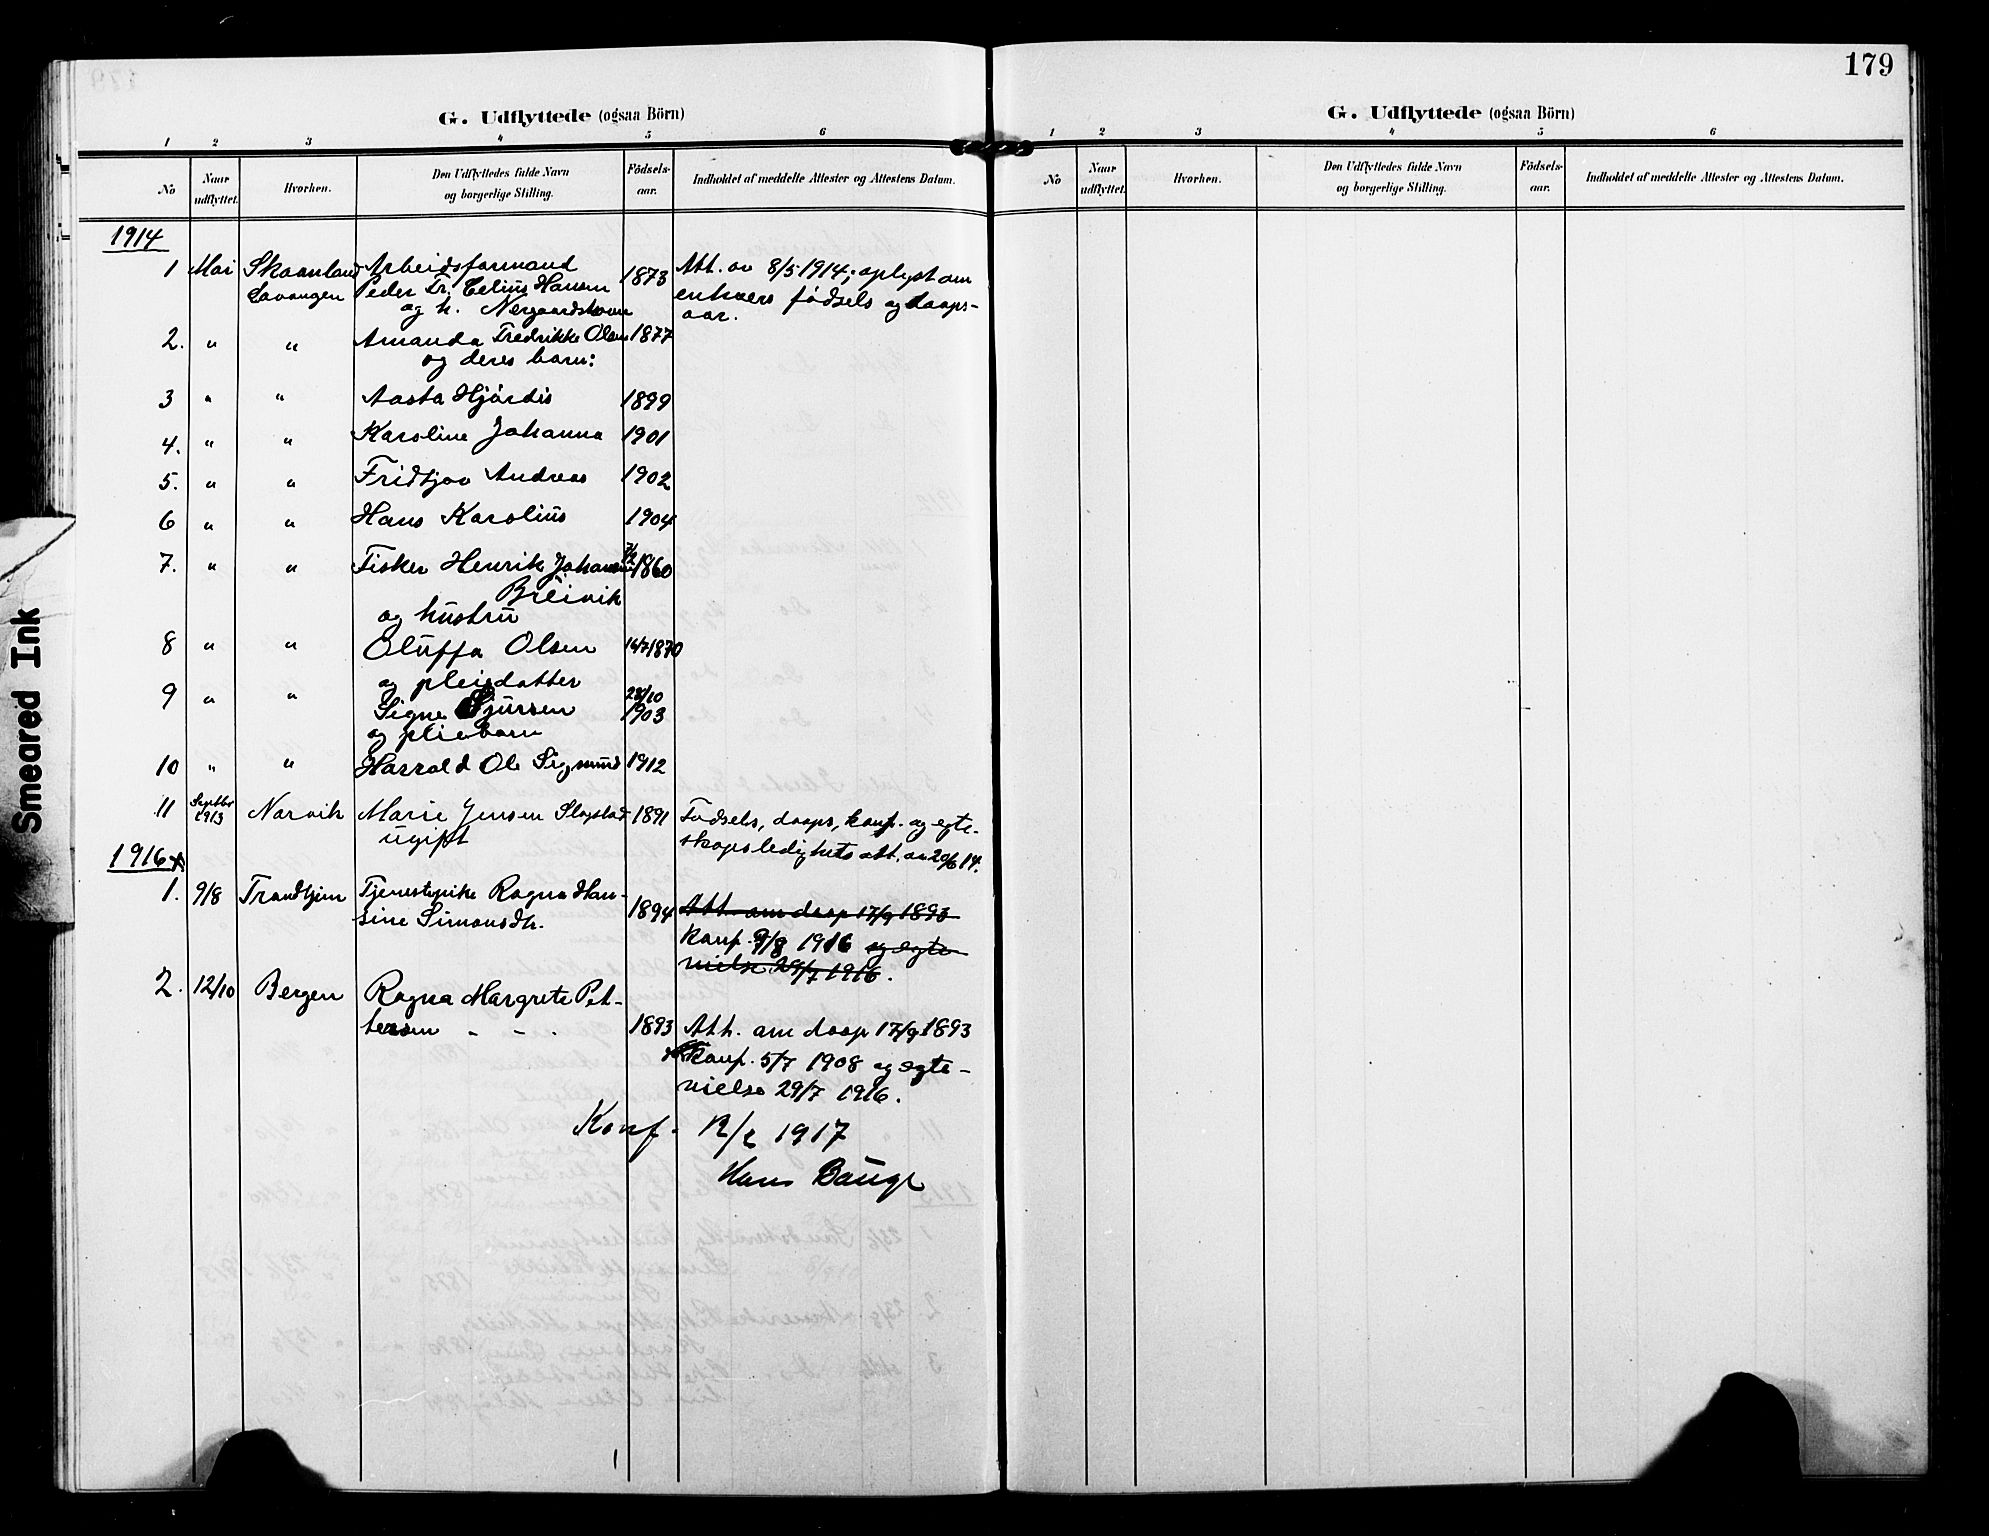 179
G. Udflyttede (ogsaa Börn)
1 2 3 4 5 6
No Naar udflyttet. Hvorhen. Den Udflyttedes fulde Navn og borgerlige Stilling. Födsels-aar. Indholdet af meddelte Attester og Attestens Datum.
1914
1 Mai Skaanland Arbeidsformand 1873 Att. av 8/5 1914; oplyst om
Lavangen Peder Fr. Celius Hansen enhvers fødsels og daaps-
og h. Nergaardshavn aar.
2. " " Amanda Fredrikke Olsen 1877
og deres barn:
3 " " Aasta Hjørdis 1899
4. " " Karoline Johanna 1901
5. " " Fridtjov Andreas 1902
6 " " Hans Karolius 1904
7. " " Fisker Henrik Johansen 1860
Breivik
og hustru
8 " " Oluffa Olsen 14/7 1870
og pleiedatter
9 " " Signe Sjursen 28/10 1903
og pliebarn
10 " " Harrald Ole Sigmund 1912
11 Septbr 1913 Narvik Marie Jensen Slogstad 1891 Fødsels, daaps, konf. og egte-
ugift skapsledighets att. av 20/6 14.
1916
1. 9/8 Trondhjem Tjenestepike Ragna Han- 1894 Att. om daap 17/9 1893
sine Simonsdtr. konf. 9/8 1916 og egte-
vielse 29/7 1916.
2. 12/10 Bergen Ragna Margrete Pet-
tersen - - . 1893 Att. om daap 17/9 1893
konf. 5/7 1908 og egte-
vielse 29/7 1916.
Konf. 12/2 1917
Hans Bauge
G. Udflyttede (ogsaa Börn)
1 2 3 4 5 6
No Naar udflyttet. Hvorhen. Den Udflyttedes fulde Navn og borgerlige Stilling. Födsels-aar. Indholdet af meddelte Attester og Attestens Datum.
Smeared Ink